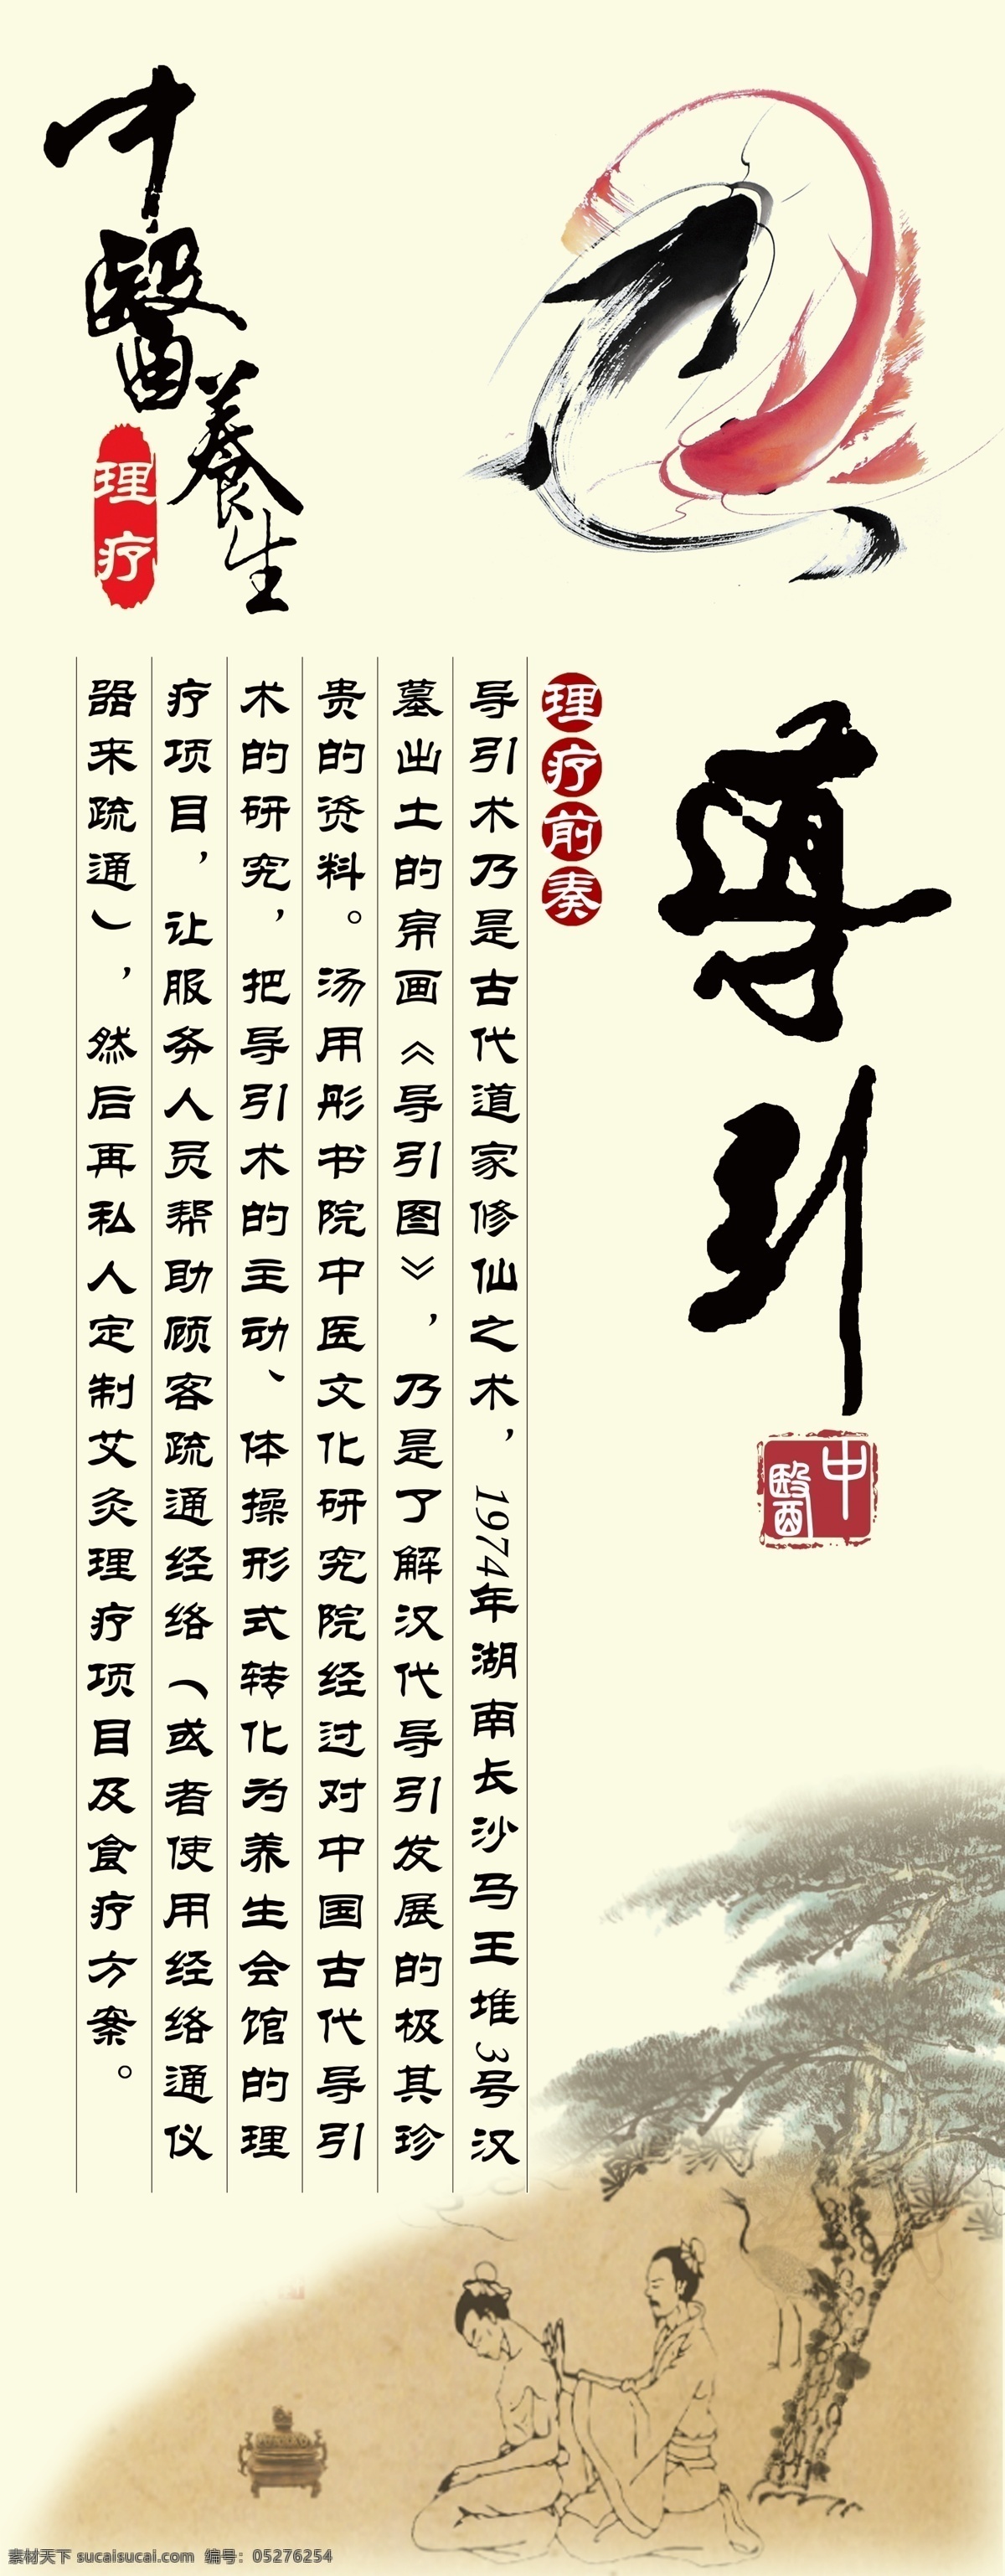 中醫養生
理疗
導引
中醫
理疗前奏
导引术乃是古代道家修仙之术，1974年湖南长沙马王堆3号汉
墓出土的帛画《导引图》，乃是了解汉代导引发展的极其珍
贵的资料。汤用彤书院中医文化研究院经过对中国古代导引
术的研究，把导引术的主动、体操形式转化为养生会馆的理
疗项目，让服务人员帮助顾客疏通经络（或者使用经络通仪
器来疏通），然后再私人定制艾灸理疗项目及食疗方案。
素材天下 sucaisucai.com 编号：05276254